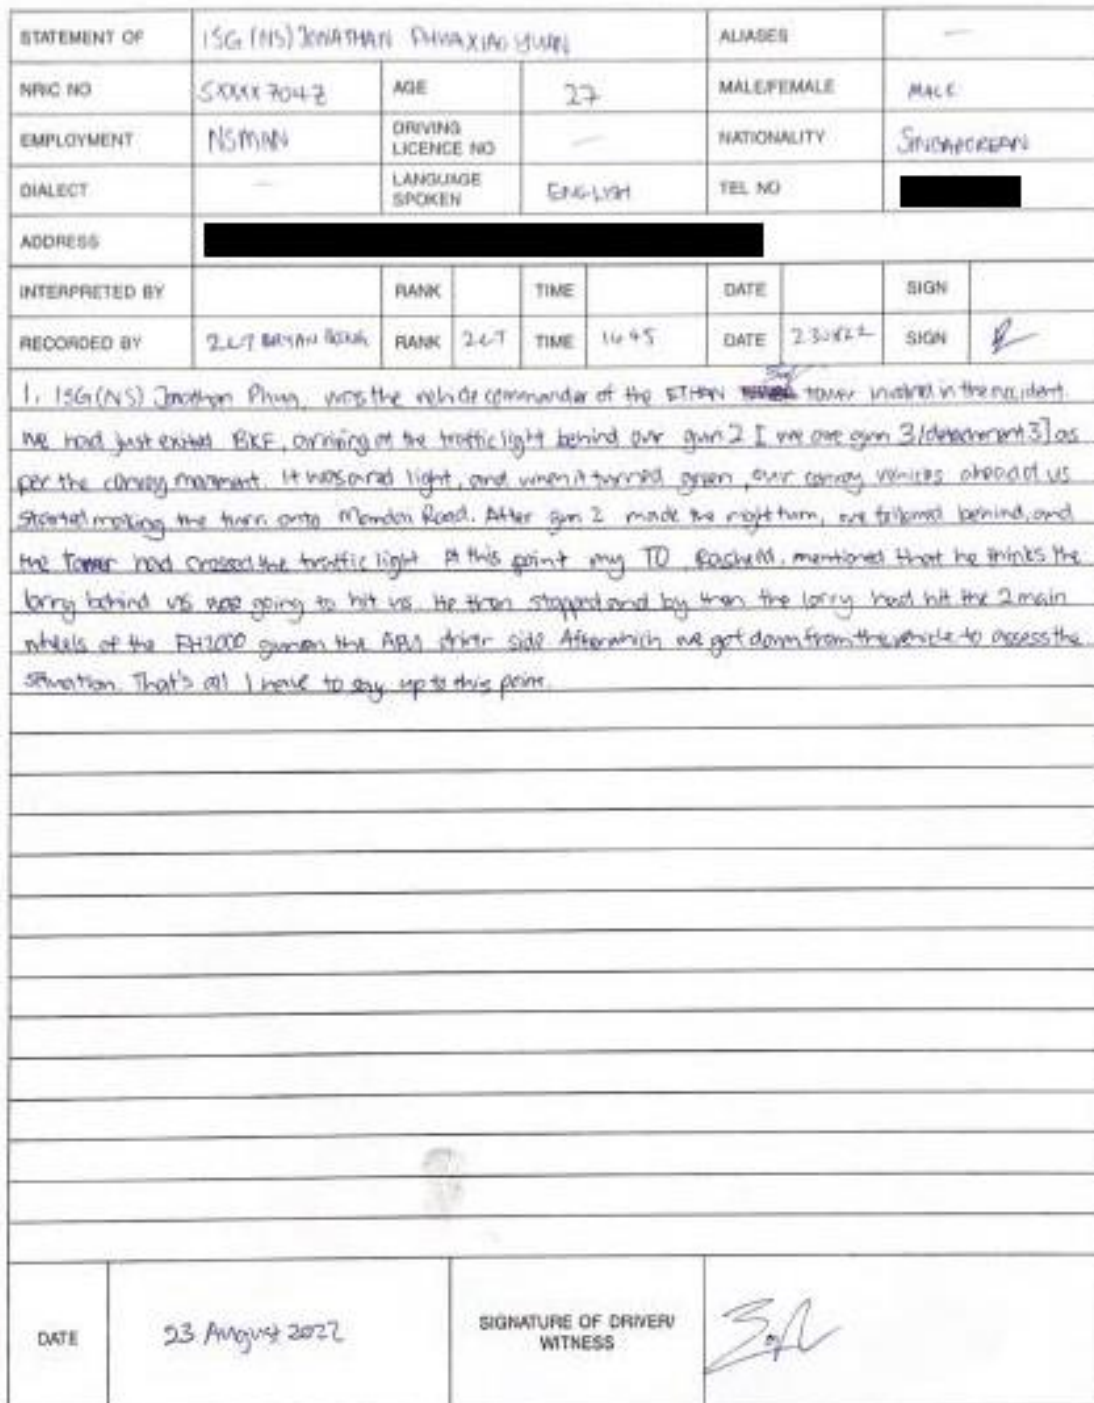 STATEMENT OF 1SG (NS) JONATHAN PHUA XIAO YUAN ALIASES —
NRIC NO SXXXX704Z AGE 27 MALE/FEMALE MALE
EMPLOYMENT NSMAN DRIVING LICENCE NO — NATIONALITY SINGAPOREAN
DIALECT — LANGUAGE SPOKEN ENGLISH TEL NO
ADDRESS
INTERPRETED BY RANK TIME DATE SIGN
RECORDED BY 2LT BRYAN RANK 2LT TIME 1645 DATE SIGN
I, 1SG(NS) Jonathan Phua, was the vehicle commander of the ETHAN tower involved in the accident.
We had just exited BKE, arriving at the traffic light behind our gun 2 [we are gun 3/detachment 3] as
per the convoy movement. It was a red light, and when it turned green, our convoy vehicles ahead of us
started making the turn onto Mandai Road. After gun 2 made the right turn, we followed behind, and
the Tower had crossed the traffic light. At this point my TO, Rasheid, mentioned that he thinks the
lorry behind us was going to hit us. He then stopped and by then the lorry had hit the 2 main
wheels of the FH2000 gun on the driver side. Afterwhich we got down from the vehicle to assess the
situation. That's all I have to say up to this point.
DATE 23 August 2022 SIGNATURE OF DRIVER/ WITNESS